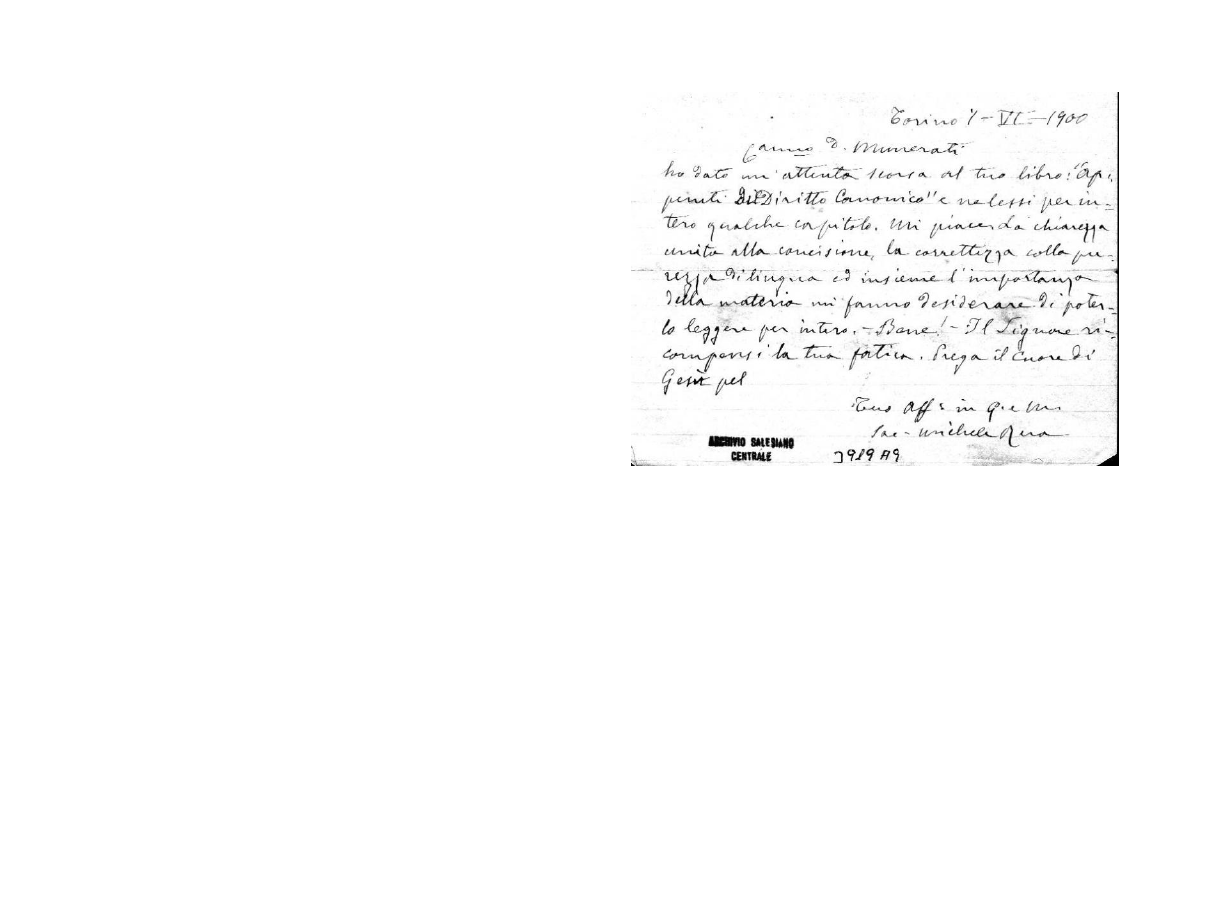 Torino 7-VI-1900
Car.mo D. Munerati
ho dato un'attenta scorsa al tuo libro: "Ap-
punti di Diritto Canonico" e ne lessi per in-
tero qualche capitolo. Mi piacer la chiarezza
unita alla concisione, la correttezza colla pu-
rezza di lingua ed insieme l'importanza
della materia mi fanno desiderare di poter-
lo leggere per intero. - Bene! - Il Signore ri-
compensi la tua fatica. Prega il Cuore di
Gesù pel
Tuo Aff.o in G. e M.
Sac. Michele Rua
ARCHIVIO SALESIANO
CENTRALE
3919 A9